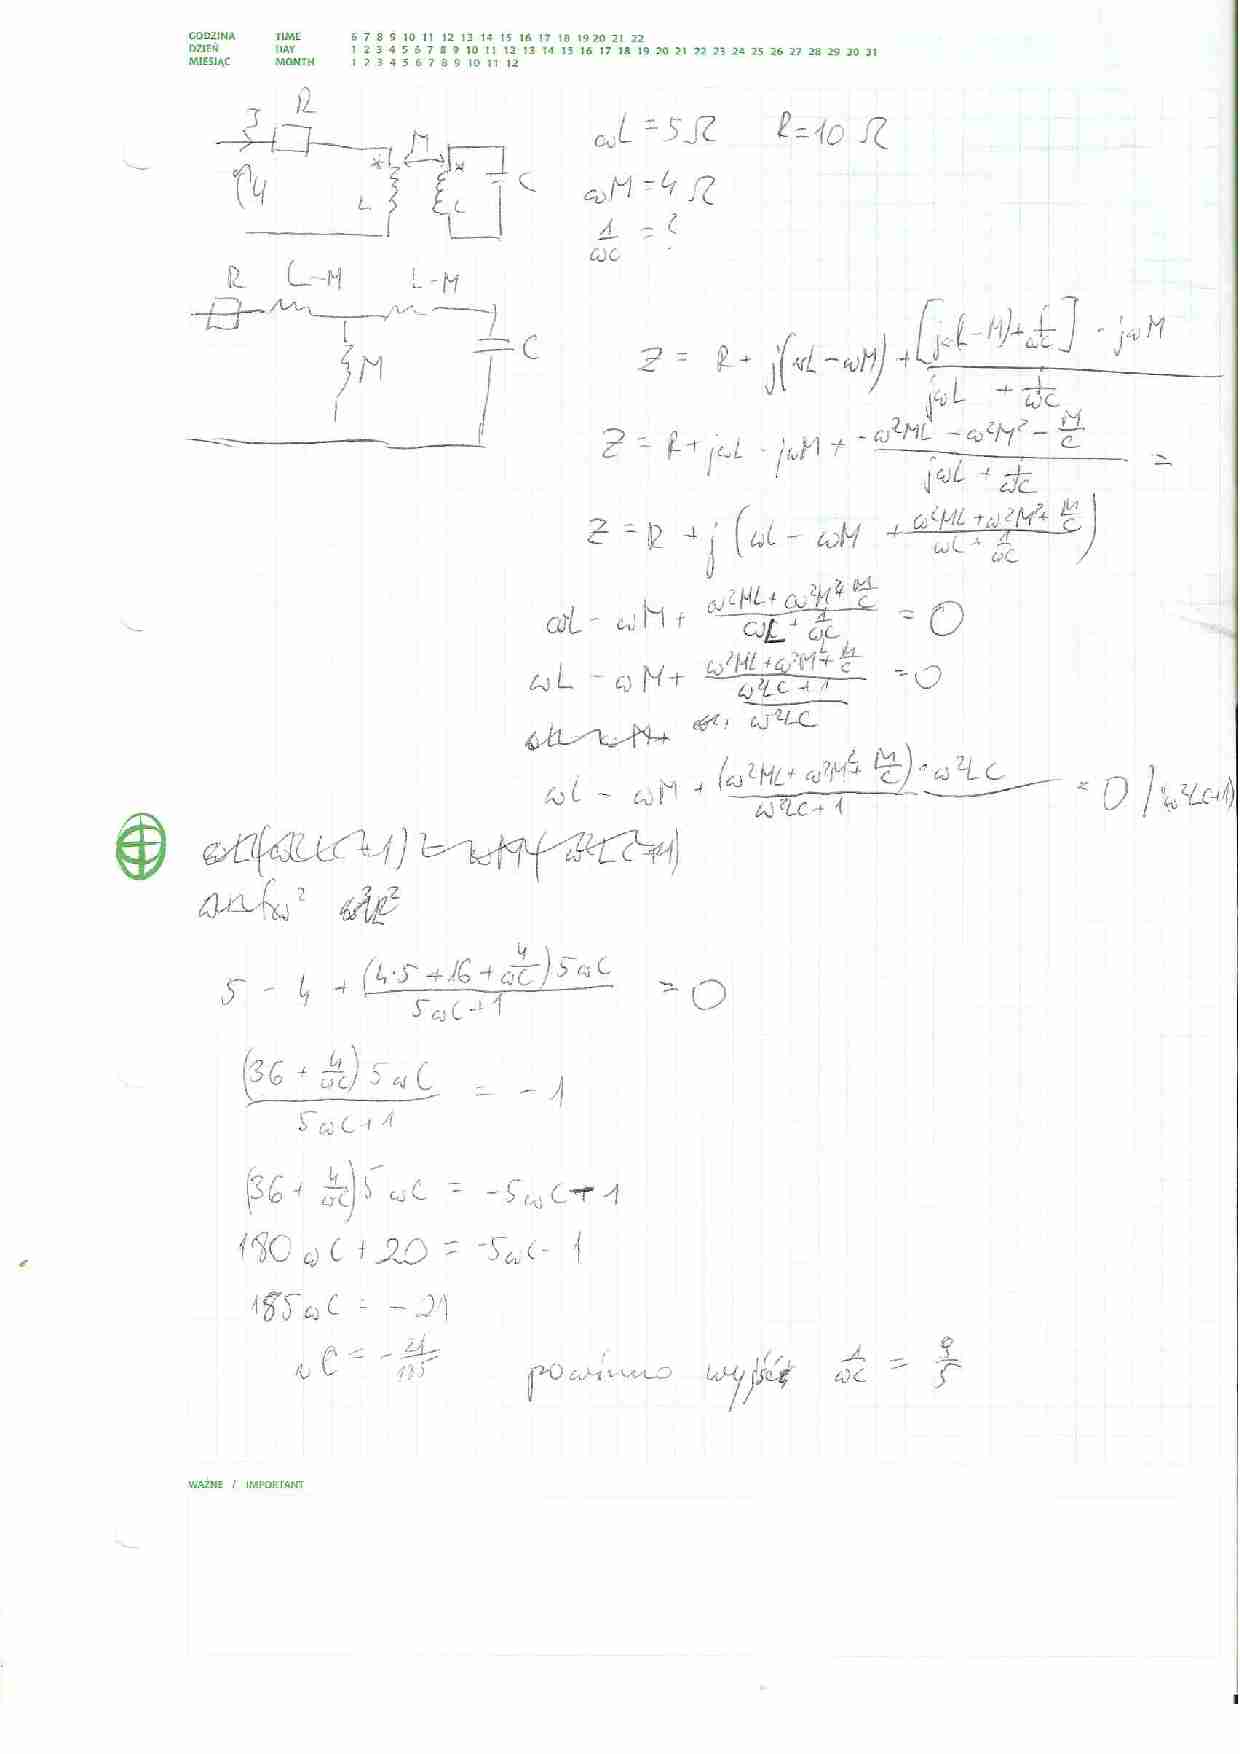 GODZINA TIME 6 7 8 9 10 11 12 13 14 15 16 17 18 19 20 21 22
DZIEŃ DAY 1 2 3 4 5 6 7 8 9 10 11 12 13 14 15 16 17 18 19 20 21 22 23 24 25 26 27 28 29 30 31
MIESIĄC MONTH 1 2 3 4 5 6 7 8 9 10 11 12
R
J M ωL = 5 Ω R = 10 Ω
* *
L L C ωM = 4 Ω
1/ωC = ?
R L-M L-M
M C
Z = R + j(ωL - ωM) + [j(L - M) + 1/ωC] · jωM / jωL + 1/ωC
Z = R + jωL - jωM + -ω²ML - ω²M² - M/C / jωL + 1/ωC =
Z = R + j(ωL - ωM + ω²ML + ω²M² + M/C / ωL + 1/ωC)
ωL - ωM + ω²ML + ω²M² + M/C / ωL + 1/ωC = 0
ωL - ωM + ω²ML + ω²M² + M/C / ω²LC + 1 / ω²LC = 0
ωL - ωM + (ω²ML + ω²M² + M/C) · ω²LC / ω²LC + 1 = 0 / (ω²LC+1)
5 - 4 + (4·5 + 16 + 4/ωC) 5ωC / 5ωC + 1 = 0
(36 + 4/ωC) 5ωC / 5ωC + 1 = -1
(36 + 4/ωC) 5ωC = -5ωC - 1
180ωC + 20 = -5ωC - 1
185ωC = -21
ωC = -21/185 powinno wyjść 1/ωC = 9/5
WAŻNE / IMPORTANT